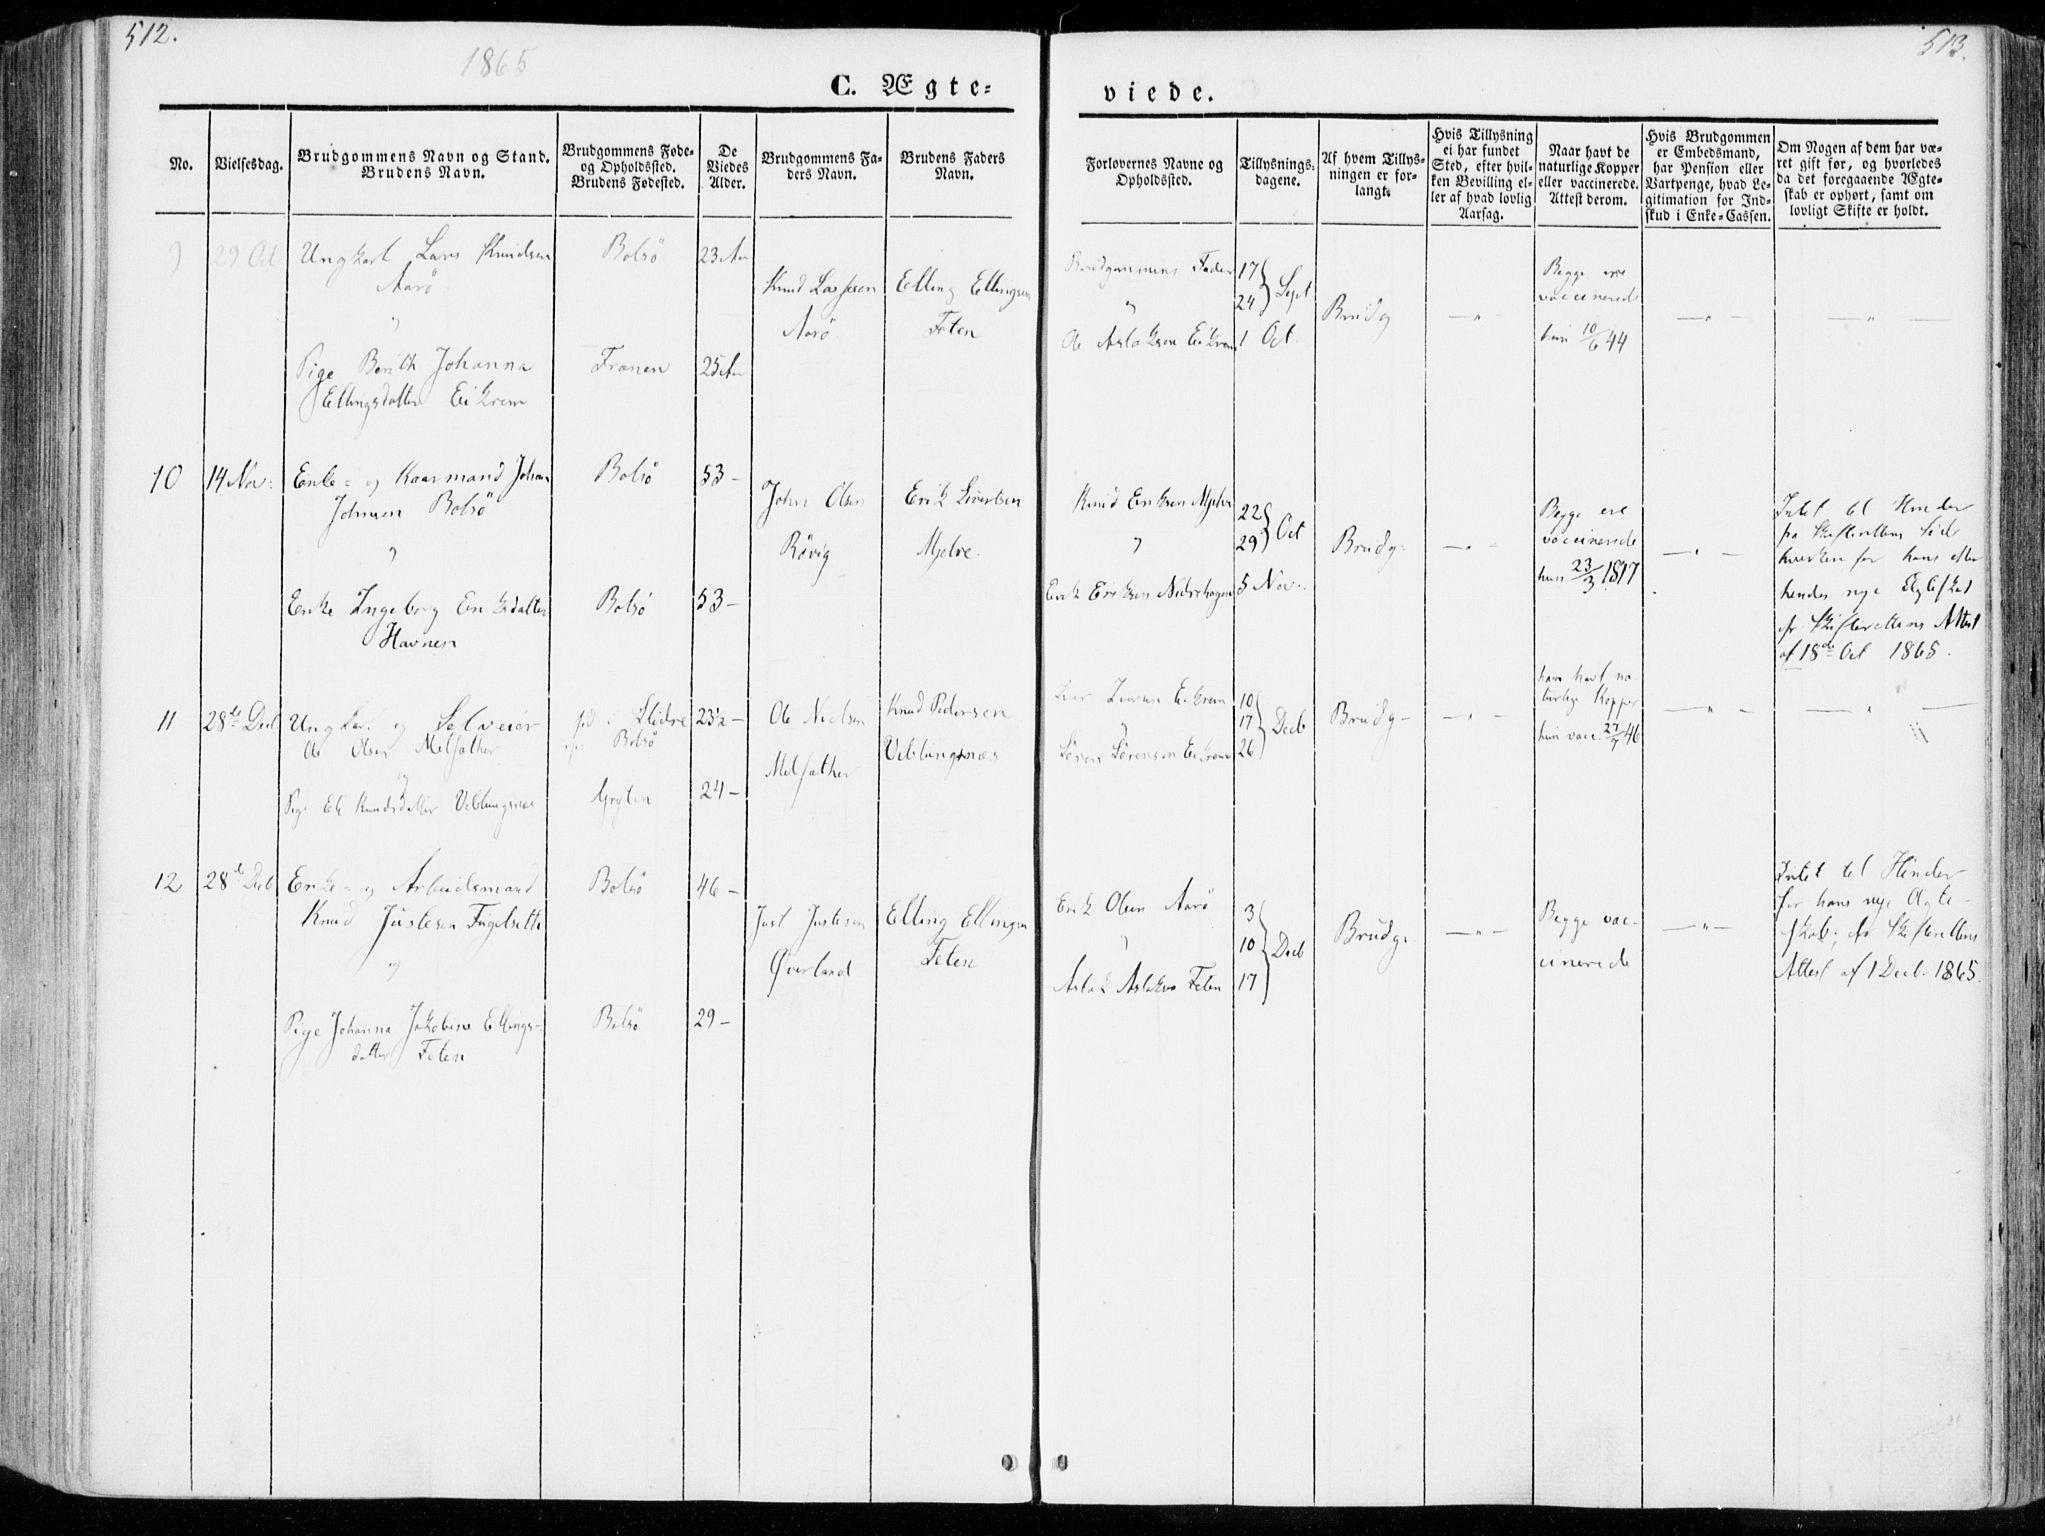 512.
513.
1865
C. Ægte-
viede.
No.
Vielsesdag.
Brudgommens Navn og Stand.
Brudens Navn.
Brudgommens Føde-
og Opholdssted.
Brudens Fødested.
De
Viedes
Alder.
Brudgommens Fa-
ders Navn.
Brudens Faders
Navn.
Forlovernes Navne og
Opholdssted.
Tillysnings-
dagene.
Af hvem Tillys-
ningen er for-
langt.
Hvis Tillysning
ei har fundet
Sted, efter hvil-
ken Bevilling el-
ler af hvad lovlig
Aarsag.
Naar havt de
naturlige Kopper
eller vaccinerede.
Attest derom.
Hvis Brudgommen
er Embedsmand,
har Pension eller
Vartpenge, hvad Le-
gitimation for Ind-
skud i Enke-Cassen.
Om Nogen af dem har væ-
ret gift før, og hvorledes
da det foregaaende Ægte-
skab er ophørt, samt om
lovligt Skifte er holdt.
9
29 Oct
Ungkarl Lars Knudsen
Aarö
"
Pige Berith Johanna
Ellingsdatter Eikrem
Bolsö
Franen
23 Aar
25 Aar
Knud Larssen
Aarö
Elling Ellingsen
Feten
Brudgommens Fader
"
Ole Aslaksen Eikrem
17
24 } Sept
1 Oct.
Brudg
— " —
Begge ere
vaccinerede
hun 10/6 44
— " —
— " —
10
14 Nov:
Enke- og Kaarmand Johan
Johnsen Bolsö
"
Enke Ingebrig Eriksdatter
Havnen
Bolsö
Bolsö
53 —
53 —
John Olsen
Rövig
Erik Sivertsen
Mjelve
Knud Eriksen Mjelve
"
Erik Eriksen Nedrehagen
22
29 } Oct
5 Nov.
Brudg:
— " —
Begge ere
vaccinerede
hun 23/3 1817
— " —
Intet til Hinder
fra Skifterettens Side
hverken for hans eller
hendes nye Ægteskab
efr. Skifterettens Attest
af 18de Oct 1865.
11
28de Decb
Ungkarl og Selveier
Ole Olsen Melsæther
"
Pige Eli Knudsdatter Veblungsnæs
Bolsö
Grytten
23½ —
24 —
Ole Nielsen
Melsæther
Knud Pedersen
Veblungsnæs
Iver Iversen Eikrem
"
Sören Sörensen Eikrem
10
17 } Decb
26
Brudg —
— " —
han havt na-
turlige Kopper
hun vacc. 27/7 46
— " —
— " —
12
28de Decb
Enke- og Arbeidsmand
Knud Justesen Fuglsette
og
Pige Johanna Jakobine Ellings-
datter Feten
Bolsö
Bolsö
46 —
29 —
Just Justesen
Øverland
Elling Ellingsen
Feten
Erik Olsen Aarö
"
Aslak Aslaksen Feten
3
10 } Decb
17
Brudg.
— " —
Begge vac-
cinerede
— " —
Intet til Hinder
for hans nye Ægte-
skab; efr Skifterettens
Attest af 1 Decb. 1865.